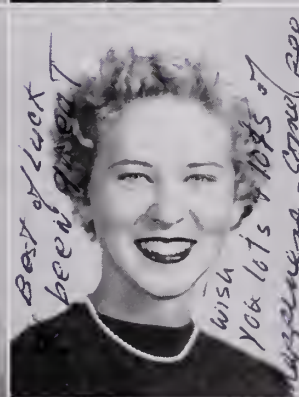 Best of Luck
been great
wish
you lots & lots of